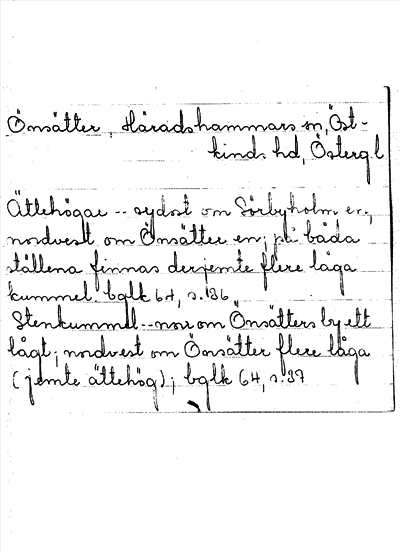 Önsätter, Häradshammars sn, Öst-
kinds hd, Östergl
Ättehögar -- sydost om Sörbyholm en,
nordvest om Önsätter en; på båda
ställena finnas derjemte flere låga
kummel. bglk 64, s. 136
Stenkummel -- norr om Önsätters by ett
lågt; nordvest om Önsätter flere låga
(jemte ättehög); bglk 64, s. 37